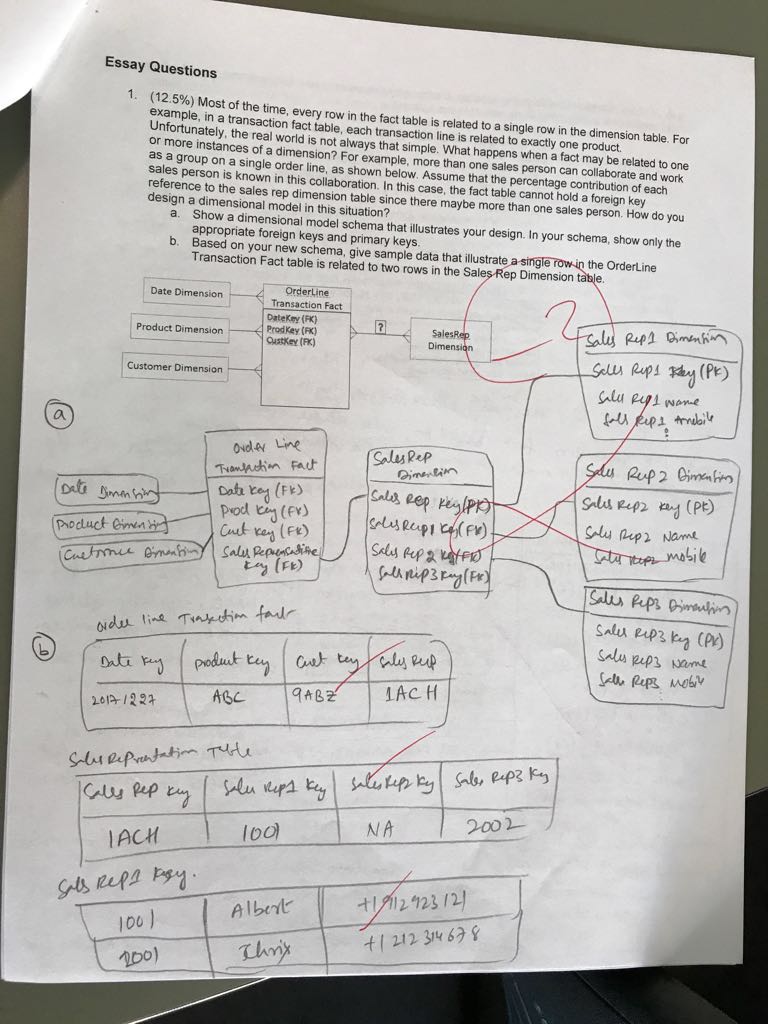 Essay Questions
1. (12.5%) Most of the time, every row in the fact table is related to a single row in the dimension table. For
example, in a transaction fact table, each transaction line is related to exactly one product.
Unfortunately, the real world is not always that simple. What happens when a fact may be related to one
or more instances of a dimension? For example, more than one sales person can collaborate and work
as a group on a single order line, as shown below. Assume that the percentage contribution of each
sales person is known in this collaboration. In this case, the fact table cannot hold a foreign key
reference to the sales rep dimension table since there maybe more than one sales person. How do you
design a dimensional model in this situation?
a. Show a dimensional model schema that illustrates your design. In your schema, show only the
appropriate foreign keys and primary keys.
b. Based on your new schema, give sample data that illustrate a single row in the OrderLine
Transaction Fact table is related to two rows in the Sales Rep Dimension table.
Date Dimension
Product Dimension
Customer Dimension
OrderLine
Transaction Fact
DateKey (FK)
ProdKey (FK)
CustKey (FK)
?
SalesRep
Dimension
2
a
Date Dimension
Product Dimension
Customer Dimension
Order Line
Transaction Fact
Date Key (FK)
Prod Key (FK)
Cust Key (FK)
Sales Representative
Key (FK)
Sales Rep
Dimension
Sales Rep Key (PK)
Sales Rep1 Key (FK)
Sales Rep 2 Key (FK)
Sales Rep3 Key (FK)
Sales Rep1 Dimension
Sales Rep1 Key (PK)
Sales Rep1 Name
Sales Rep1 mobile
Sales Rep 2 Dimension
Sales Rep2 Key (PK)
Sales Rep2 Name
Sales Rep2 mobile
Sales Rep3 Dimension
Sales Rep3 Key (PK)
Sales Rep3 Name
Sales Rep3 Mobile
b
order line Transaction fact
Date Key product Key Cust Key Sales Rep
20171227 ABC 9ABZ 1ACH
Sales Representation Table
Sales Rep Key Sales Rep1 Key Sales Rep2 Key Sales Rep3 Key
1ACH 1001 NA 2002
Sales Rep1 Key.
1001 Albert +1912923121
2001 +1212314678